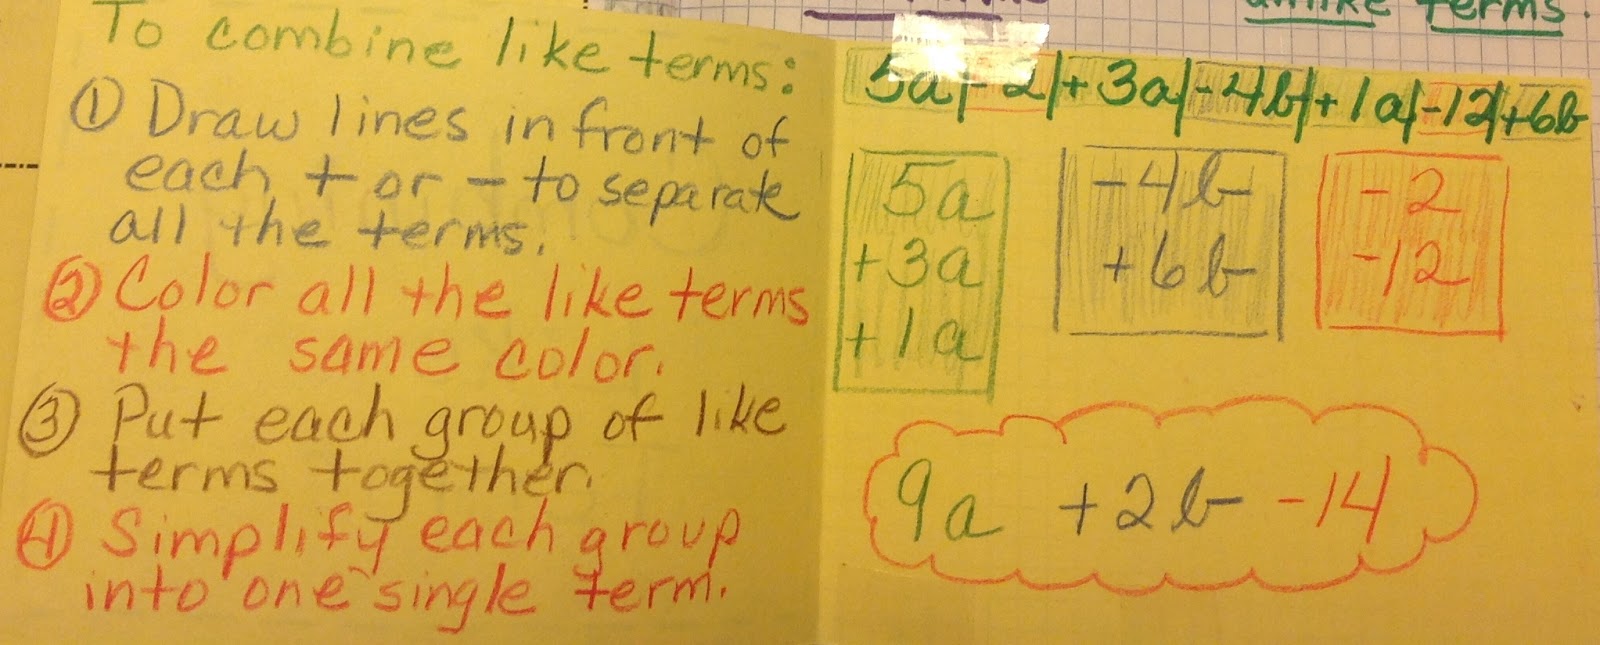 unlike terms.
To combine like terms:
① Draw lines in front of
each + or - to separate
all the terms.
② Color all the like terms
the same color.
③ Put each group of like
terms together.
④ Simplify each group
into one single term.
5a|-2|+3a|-4b|+1a|-12|+6b
5a
+3a
+1a
-4b
+6b
-2
-12
9a +2b -14